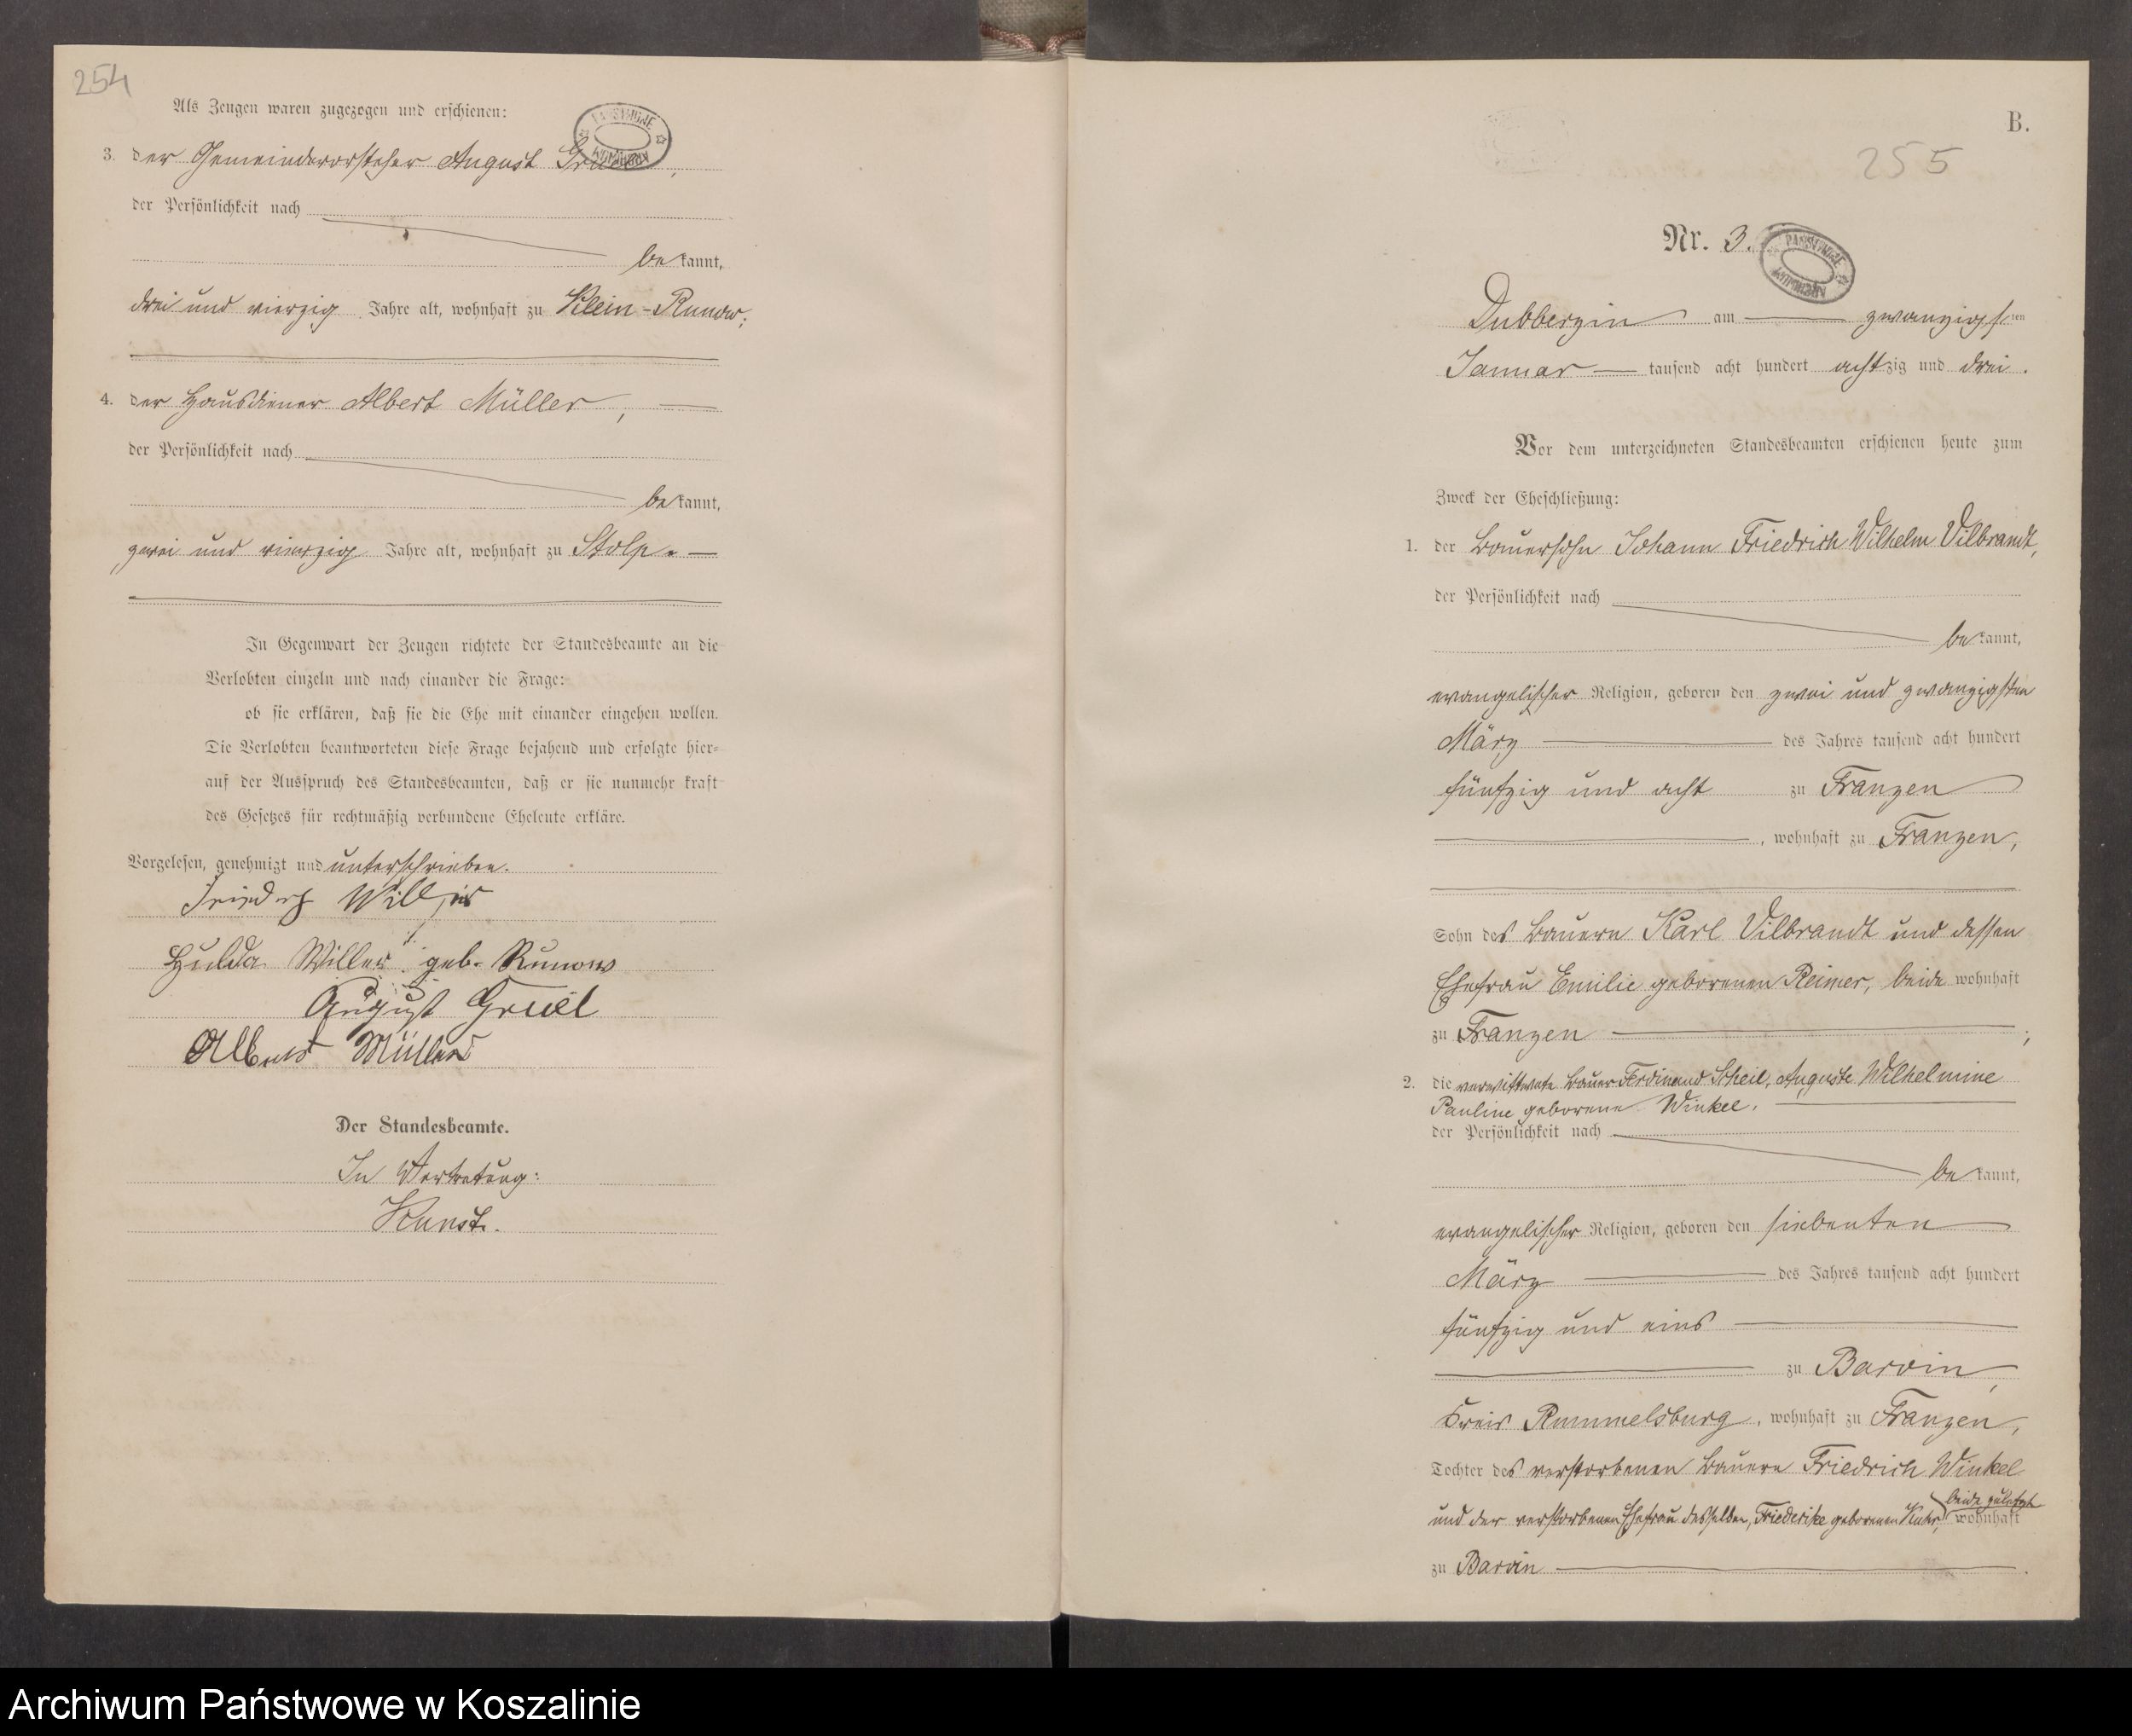 254
Als Zeugen waren zugezogen und erschienen:
3. der Gemeindevorsteher August Gruel,
der Persönlichkeit nach
bekannt,
drei und vierzig Jahre alt, wohnhaft zu Klein-Runow;
4. der Hausdiener Albert Müller,
der Persönlichkeit nach
bekannt,
zwei und vierzig Jahre alt, wohnhaft zu Stolp.
In Gegenwart der Zeugen richtete der Standesbeamte an die
Verlobten einzeln und nach einander die Frage:
ob sie erklären, daß sie die Ehe mit einander eingehen wollen.
Die Verlobten beantworteten diese Frage bejahend und erfolgte hier-
auf der Ausspruch des Standesbeamten, daß er sie nunmehr kraft
des Gesetzes für rechtmäßig verbundene Eheleute erkläre.
Vorgelesen, genehmigt und unterschrieben.
Hulda Willer geb. Runow
August Gruel
Albert Müller
Der Standesbeamte.
In Vertretung:
B.
255
Nr. 3.
Dubberzin am zwanzigsten
Januar tausend acht hundert achtzig und drei.
Vor dem unterzeichneten Standesbeamten erschienen heute zum
Zweck der Eheschließung:
1. der Bauersohn Johann Friedrich Wilhelm Vilbrandt,
der Persönlichkeit nach
bekannt,
evangelischer Religion, geboren den zwei und zwanzigsten
März des Jahres tausend acht hundert
fünfzig und acht zu Franzen
, wohnhaft zu Franzen,
Sohn des Bauern Karl Vilbrandt und dessen
Ehefrau Emilie geborenen Reimer, beide wohnhaft
zu Franzen ;
2. die verwittwete Bauer Ferdinand Scheil, Auguste Wilhelmine
Pauline geborene Winkel,
der Persönlichkeit nach
bekannt,
evangelischer Religion, geboren den siebenten
März des Jahres tausend acht hundert
fünfzig und eins
zu Barvin,
Kreis Rummelsburg, wohnhaft zu Franzen,
Tochter des verstorbenen Bauern Friedrich Winkel
beide zuletzt
und der verstorbenen Ehefrau desselben, Friederike geborenen wohnhaft
zu Barvin .
Archiwum Państwowe w Koszalinie